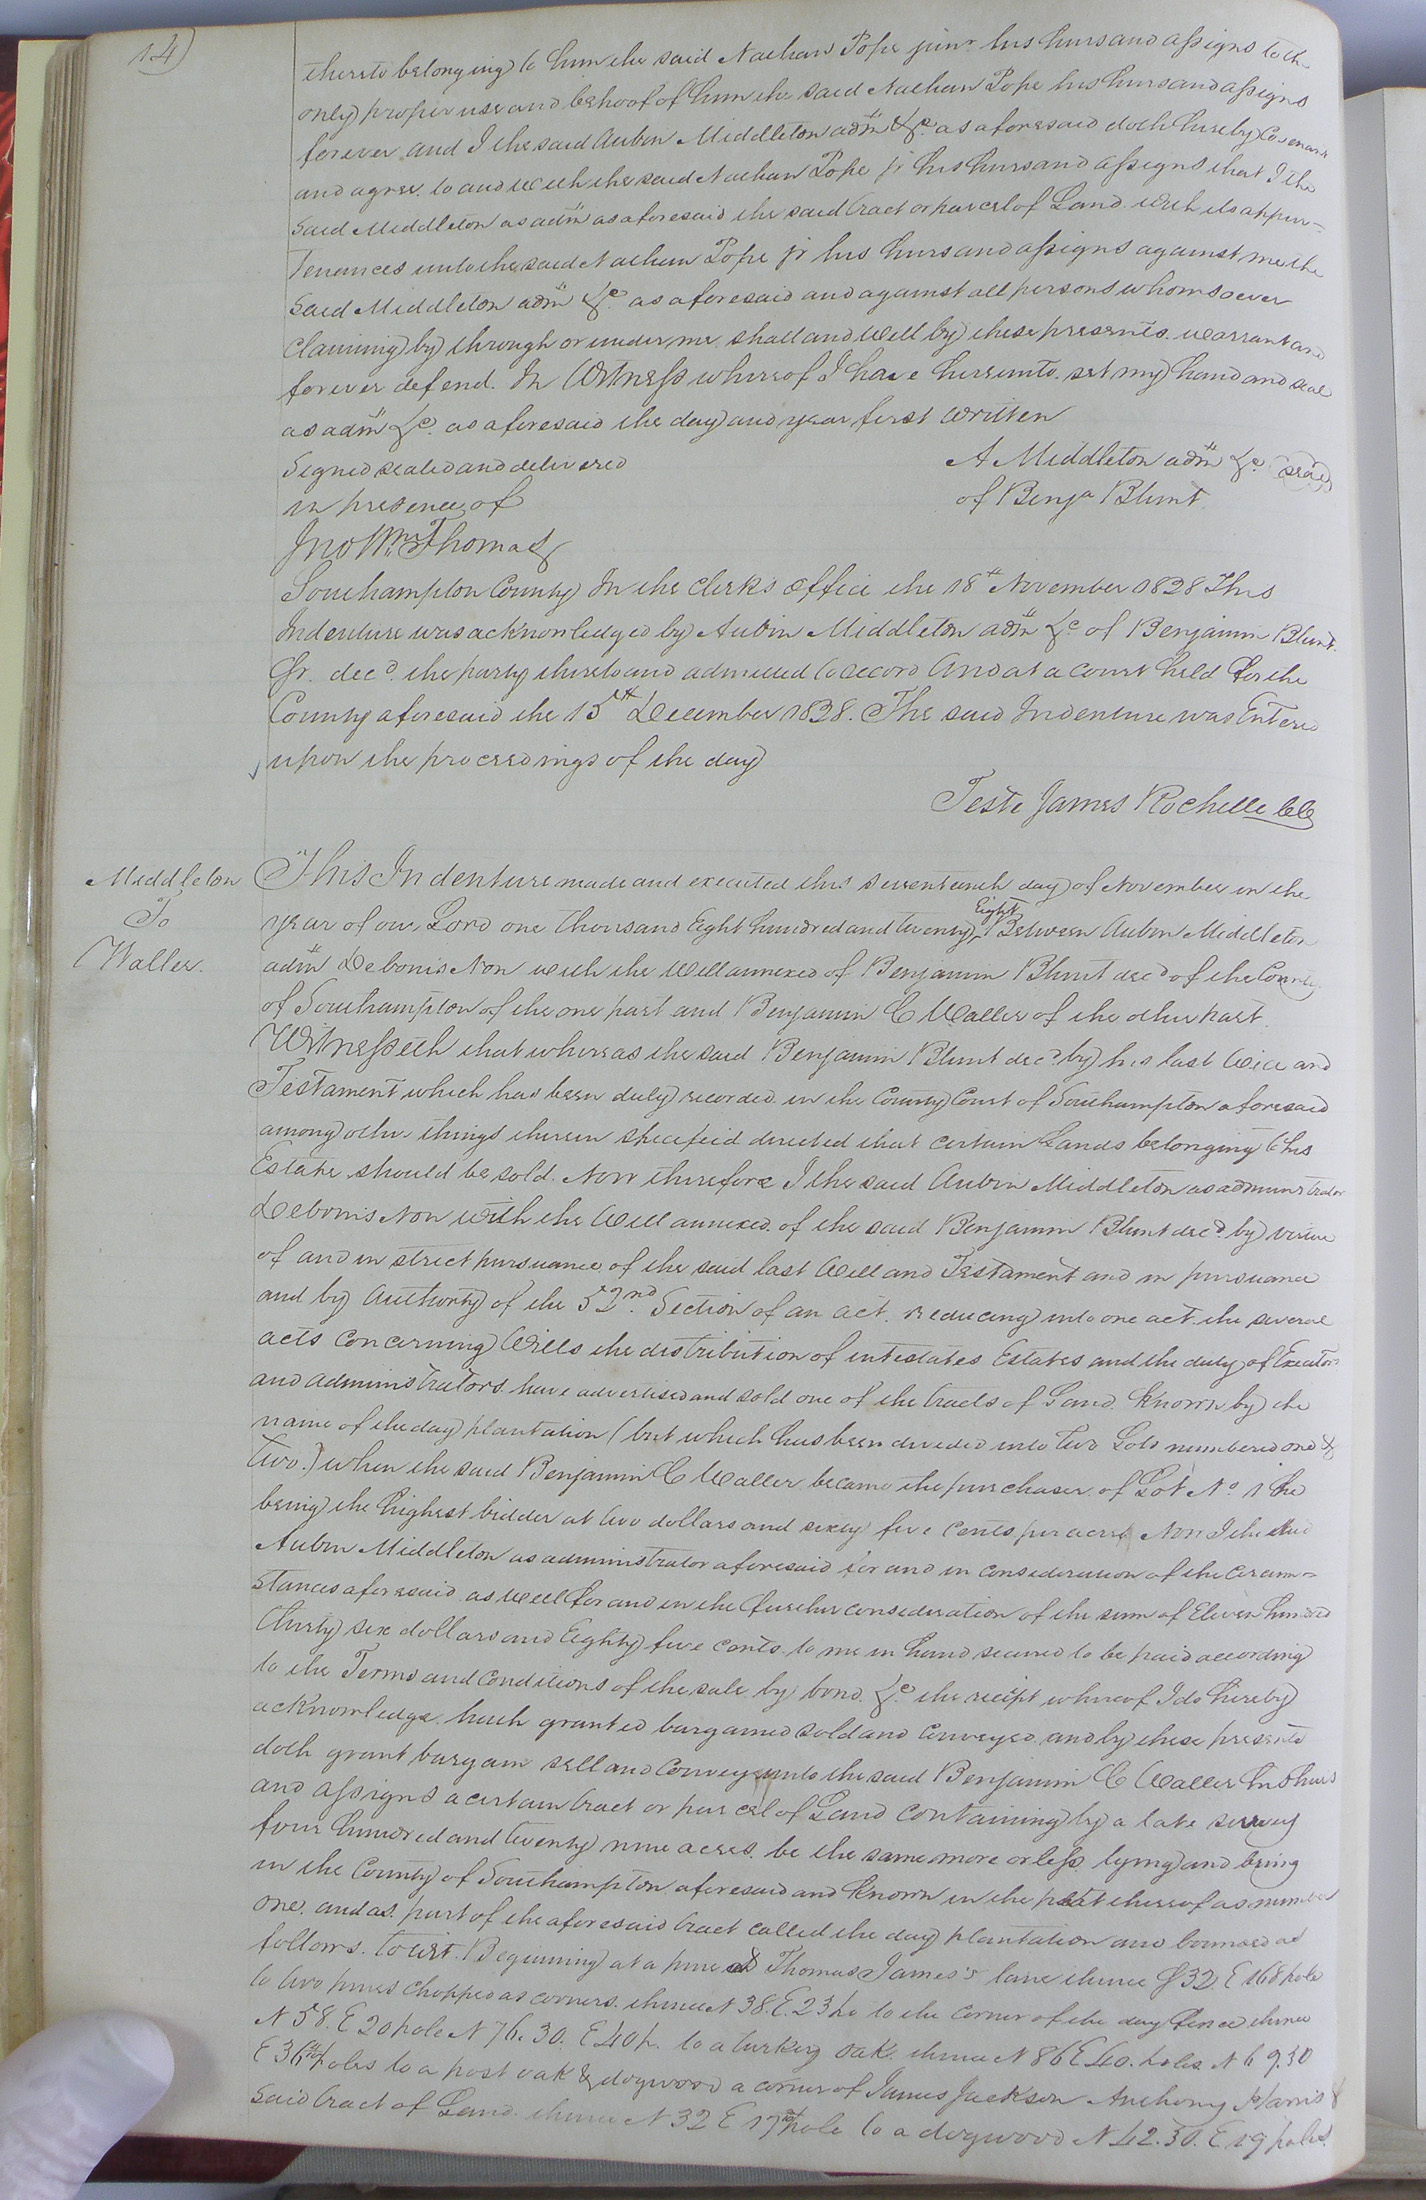 14)
thereto belonging to him the said Nathan Pope junr his heirs and assigns to th
only proper use and behoof of him the said Nathan Pope his heirs and assigns
forever and I the said Aubin Middleton admr &c as aforesaid doth hereby Covenant
and agree to and with the said Nathan Pope jr his heirs and assigns that I the
said Middleton as admr as aforesaid the said tract or parcel of Land with its appur-
tenances unto the said Nathan Pope jr his heirs and assigns against me the
said Middleton admr &c as aforesaid and against all persons whomsoever
Claiming by through or under me shall and will by these presents warrant and
forever defend. In Witness whereof I have hereunto set my hand and seal
as admr &c as aforesaid the day and year first written
Signed sealed and delivered A Middleton admr &c (seal)
in presence of of Benja Blunt
Jno Wm Thomas
Southampton County In the Clerks office the 18th November 1828 This
Indenture was acknowledged by Aubin Middleton admr &c of Benjamin Blunt
Sr. decd. the party thereto and admitted to record And at a court held for the
County aforesaid the 15th December 1828. The said Indenture was Entered
upon the proceedings of the day
Teste James Rochelle CC
Middleton
To
Waller.
This Indenture made and executed this seventeenth day of November in the
year of our Lord one thousand Eight hundred and twenty Eight Between Aubin Middleton
admr Debonis Non with the Will annexed of Benjamin Blunt decd of the County
of Southampton of the one part and Benjamin C Waller of the other part
Witnesseth that whereas the said Benjamin Blunt decd by his last Will and
Testament which has been duly recorded in the County Court of Southampton aforesaid
among other things therein specifeid directed that certain Lands belonging to his
Estate should be sold. Now therefore I the said Aubin Middleton as administrator
Debonis Non with the Will annexed of the said Benjamin Blunt decd by virtue
of and in strict pursuance of the said last Will and Testament and in pursuance
and by Authority of the 52nd. Section of an act. Reducing into one act the several
acts Concerning Wills the distribution of intestates Estates and the duty of Executors
and administrators have advertised and sold one of the tracts of Land Known by the
name of the day plantation (but which has been divided into Two Lots numbered one &
two.) when the said Benjamin C Waller became the purchaser of Lot No 1 he
being the highest bidder at two dollars and sixty five Cents per acre Now I the said
Aubin Middleton as administrator aforesaid for and in consideration of the circum-
stances aforesaid as well for and in the further consideration of the sum of Eleven hundred
thirty six dollars and Eighty five cents to me in hand secured to be paid according
to the Terms and Conditions of the sale by bond &c the reciept whereof I do hereby
acknowledge hath granted bargained sold and Conveyed and by these presents
doth grant bargain sell and Convey unto the said Benjamin C Waller his heirs
and assigns a certain tract or parcel of Land Containing by a late survey
four hundred and twenty nine acres be the same more or less lying and being
in the County of Southampton aforesaid and Known in the plat thereof as number
one. and as part of the aforesaid tract called the day plantation and bounded as
follows. towit. Beginning at a pine at Thomas James's lane thence S 32 E 168 pole
to two pines Chopped as corners thence N 38. E. 23 po to the corner of the day fence thence
N 58. E 20 pole N 76. 30. E 40 p. to a turkey oak thence N 86 E 40. poles N 69.30
E 36 poles to a post oak & dogwood a corner of James Jackson Anthony Harris &
said tract of Land thence N 32 E 17 pole to a dogwood N 42. 30. E 19 poles